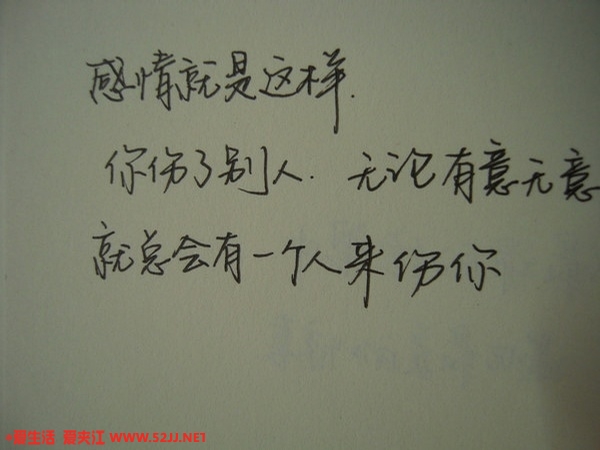 感情就是这样.
你伤了别人. 无论有意无意
就总会有一个人来伤你
爱生活 爱夹江 WWW.52JJ.NET